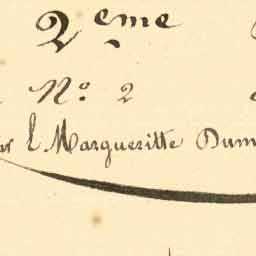 2.eme
Nº. 2
ar L. Margueritte Dum